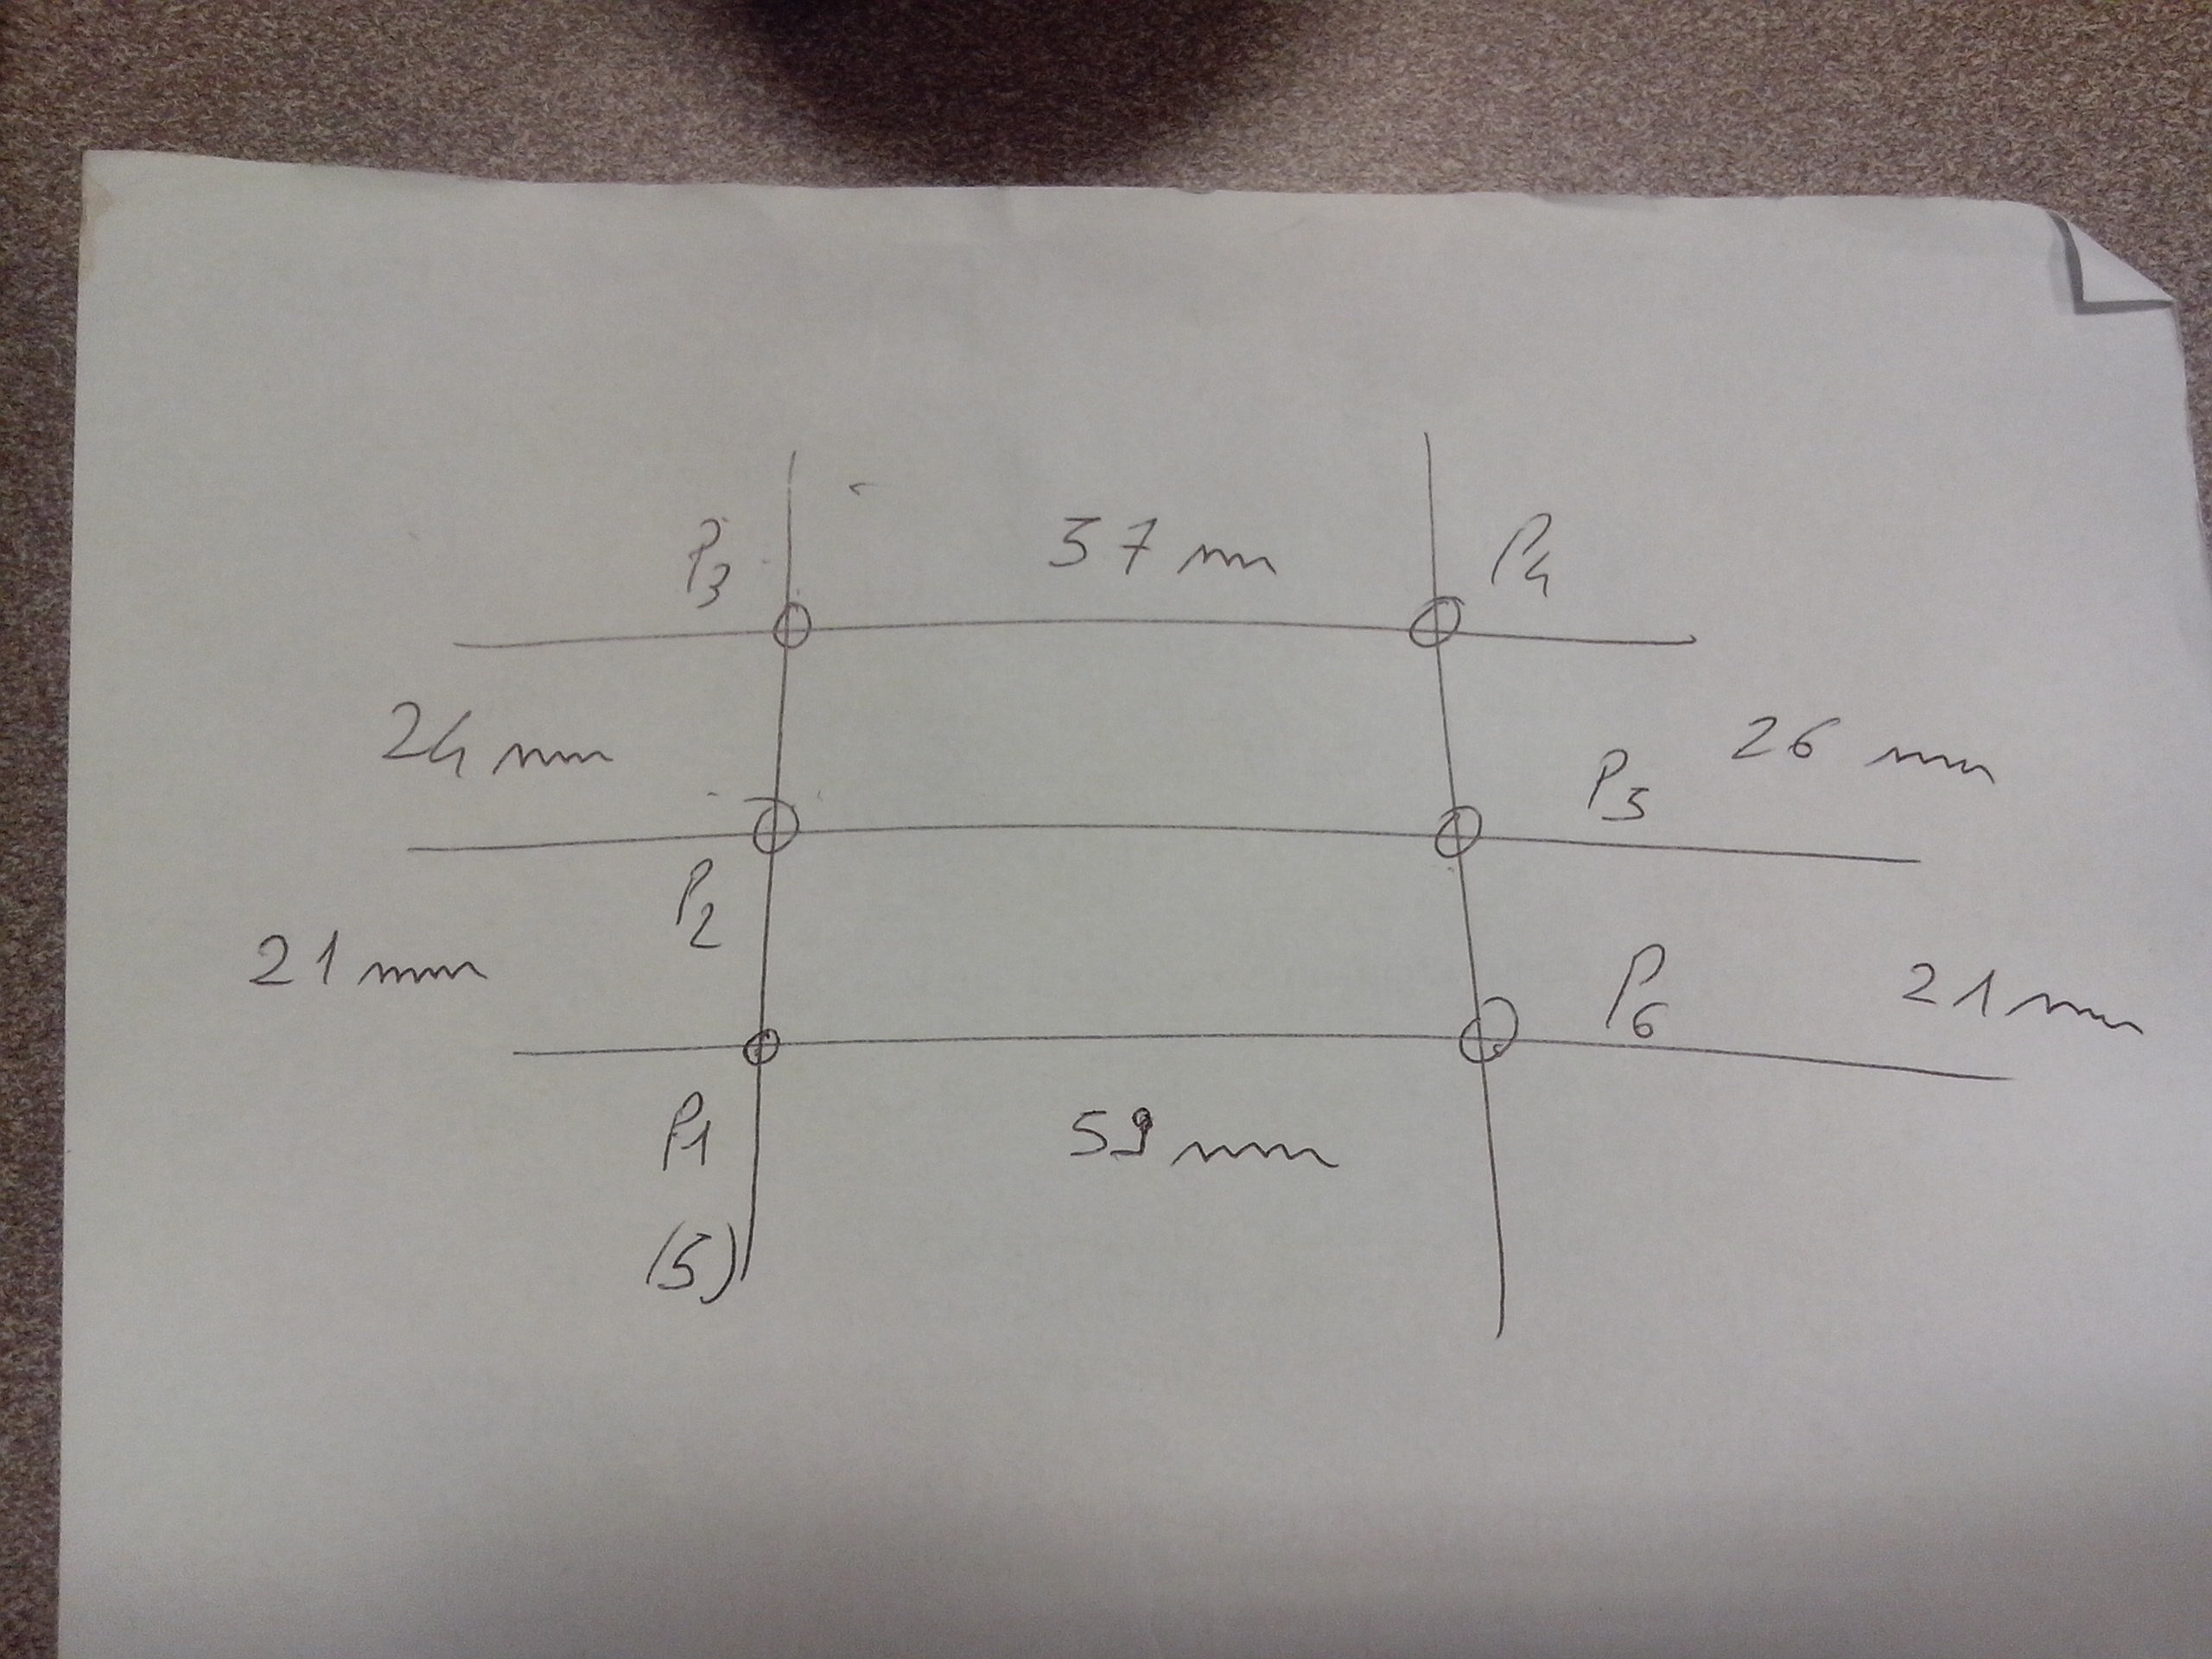 P3 57 mm P4
24 mm P5 26 mm
P2
21 mm P6 21 mm
P1 59 mm
(5)